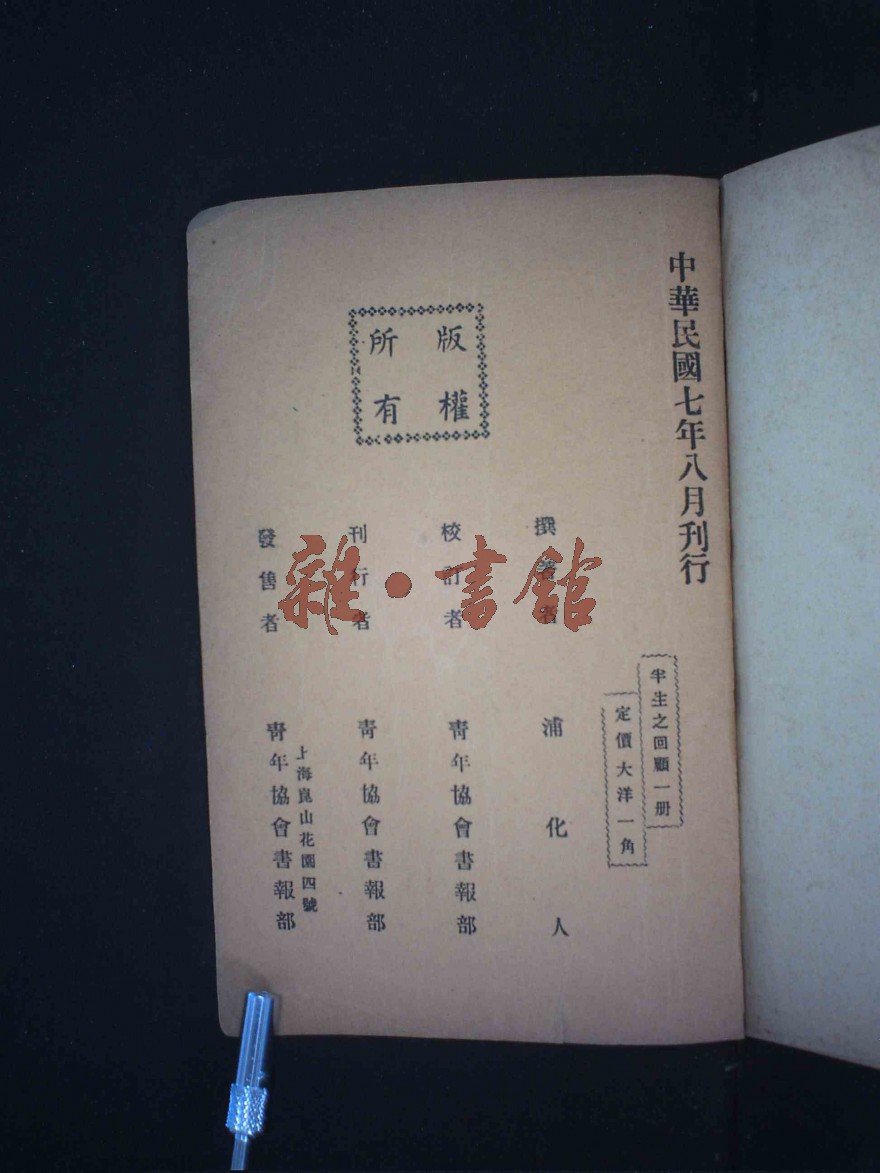 中華民國七年八月刊行
半生之回顧一册
定價大洋一角
版權
所有
撰著者 浦化人
校訂者 青年協會書報部
刊行者 青年協會書報部
上海崑山花園四號
發售者 青年協會書報部
雜·書館